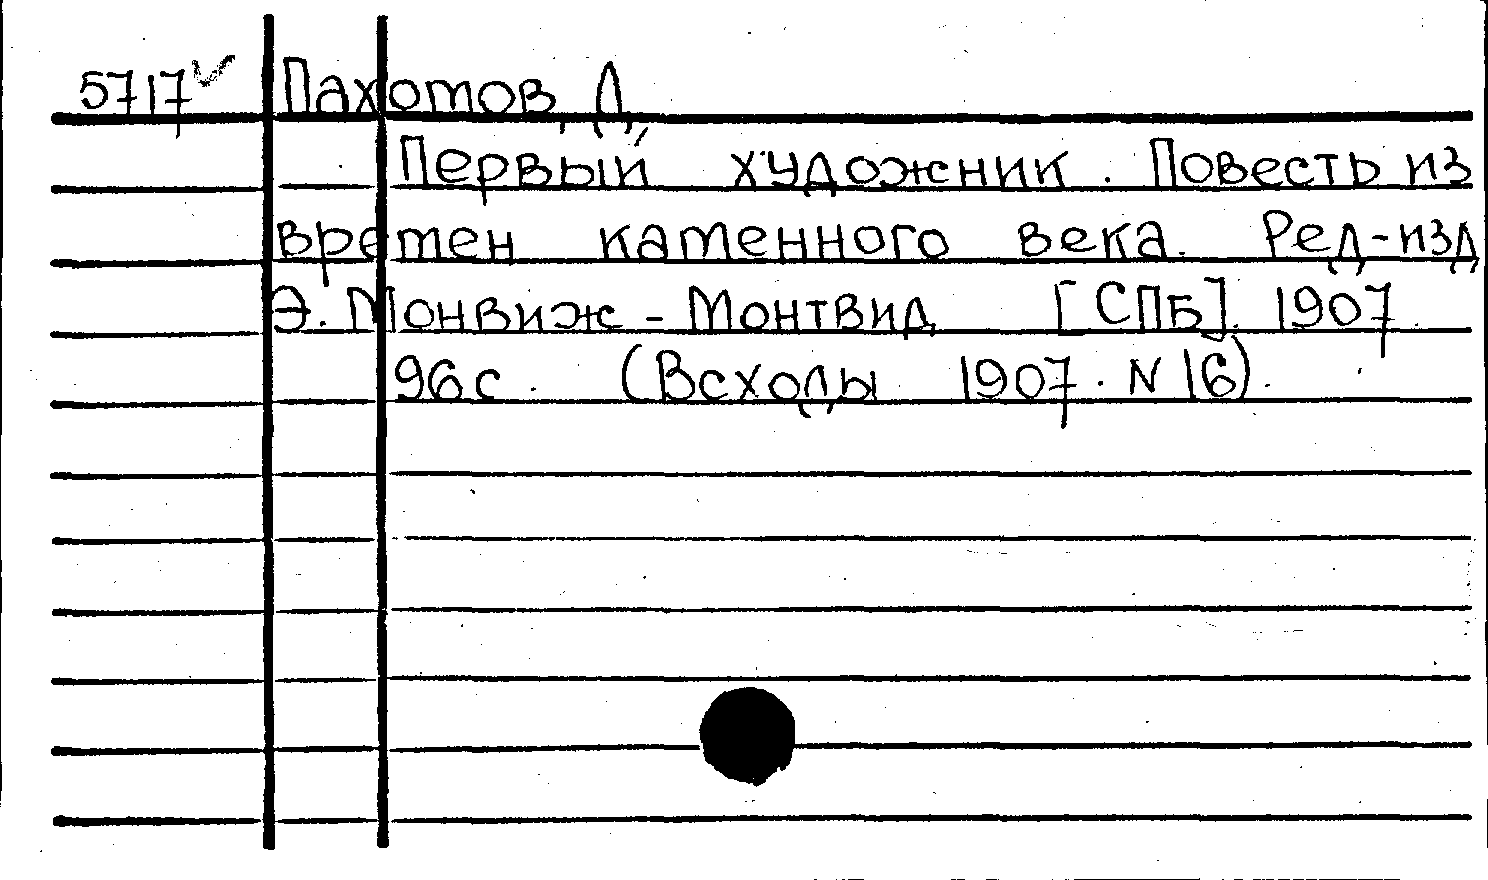 5717 Пахомов, Д.
Первый художник. Повесть из
времен каменного века. Ред-изд
Э. Монвиж-Монтвид [СПБ]. 1907
96 с. (Всходы 1907. N 16).